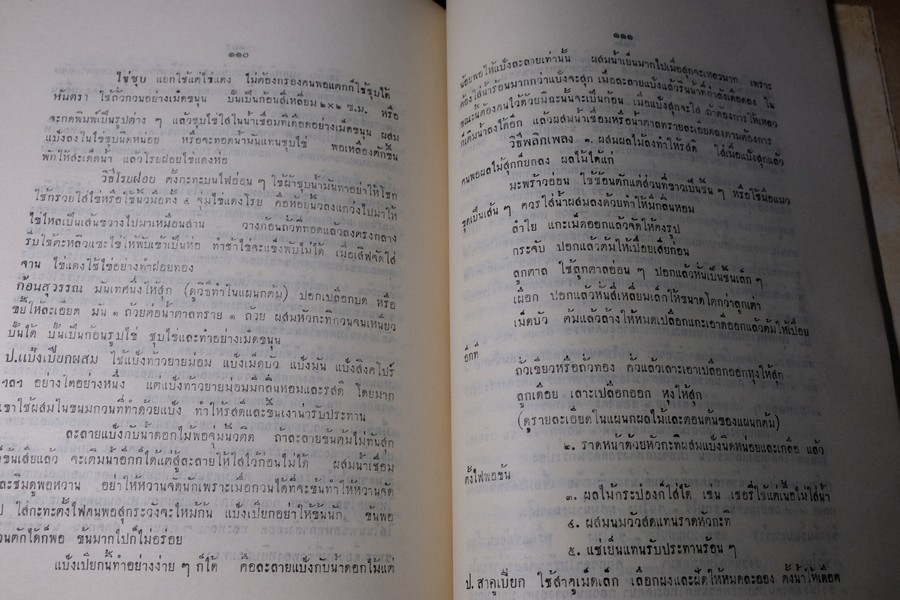 ๑๑๐
ไข่ชุบ แยกใช้แต่ไข่แดง ไม่ต้องกรองคนพอแตกก็ใช้ชุบได้
หันตรา ใช้ถั่วกวนอย่างเม็ดขนุน ปั้นเป็นก้อนสี่เหลี่ยม ๒×๒ ซ.ม. หรือ
จะกดพิมพ์เป็นรูปต่าง ๆ แล้วชุบไข่ใส่ในน้ำเชื่อมที่เดือดอย่างเม็ดขนุน ผสม
แป้งลงในไข่ชุบนิดหน่อย หรือจะทอดน้ำมันแทนชุบไข่ พอเหลืองตักขึ้น
พักให้สะเด็ดน้ำ แล้วโรยฝอยไข่แดงห่อ
วิธีโรยฝอย ตั้งกะทะบนไฟอ่อน ๆ ใช้ผ้าชุบน้ำมันทาอย่าให้โชก
ใช้กรวยใส่ไข่หรือใช้นิ้วมือทั้ง ๕ จุ่มไข่แดงโรย คือหย่อนิ้วลงแกว่งไปมาให้
ไข่ไหลเป็นเส้นขวางไปมาเหมือนสาน วางก้อนถั่วที่ทอดแล้วลงตรงกลาง
รีบใช้ตะหลิวแซะไข่ให้พับเข้าเป็นห่อ ทำช้าไข่จะแข็งพับไม่ได้ เมื่อเสิฟจัดใส่
จาน ไข่แดงใช้ไข่อย่างทำฝอยทอง
ก้อนสุวรรณ มันเทศนึ่งให้สุก (ดูวิธีทำในแผนกต้ม) ปอกเปลือกบด หรือ
ขยี้ให้ละเอียด มัน ๑ ถ้วยต่อน้ำตาลทราย ๑ ถ้วย ผสมหัวกะทิกวนจนเหนียว
ปั้นได้ ปั้นเป็นก้อนรูปไข่ ชุบไข่และทำอย่างเม็ดขนุน
ป.แป้งเปียกผสม ใช้แป้งท้าวยายม่อม แป้งเม็ดบัว แป้งมัน แป้งสิงคโปร์
อย่างใดอย่างหนึ่ง แต่แป้งท้าวยายม่อมมีกลิ่นหอมและรสดี โดยมาก
เขาใช้ผสมในขนมกวนที่ทำด้วยแป้ง ทำให้รสดีและขึ้นเงาน่ารับประทาน
ละลายแป้งกับน้ำดอกไม้พอจุ่มนิ้วติด ถ้าละลายข้นต้มไม่ทันสุก
ข้นเสียแล้ว จะเติมน้ำอีกก็ได้แต่สู้ละลายให้ใสไว้ก่อนไม่ได้ ผสมน้ำเชื่อม
ละชิมดูพอหวาน อย่าให้หวานจัดนักเพราะเมื่อกวนได้ที่จะข้นทำให้หวานจัด
ใส่กะทะตั้งไฟคนพอสุกระวังจะไหม้ก้น แป้งเปียกอย่าให้ข้นนัก ข้นพอ
ตักได้ก็พอ ข้นมากไปก็ไม่อร่อย
แป้งเปียกนี้ทำอย่างง่าย ๆ ก็ได้ คือละลายแป้งกับน้ำดอกไม้แต่
๑๑๑
น้อยพอให้แป้งละลายเท่านั้น ผสมน้ำเย็นมากไปเมื่อสุกจะเหลวมาก เพราะ
ต้องใส่น้ำร้อนมากกว่าแป้งจะสุก เมื่อละลายแป้งแล้วรินน้ำที่กำลังเดือดลง ใน
ขณะนี้ต้องคนไวด้วยมิฉะนั้นจะเป็นก้อน เมื่อแป้งสุกจะใส ถ้าต้องการให้เหลว
ก็เติมน้ำลงได้อีก แล้วผสมน้ำเชื่อมหรือน้ำตาลทรายละเอียดลงตามต้องการ
วิธีพลิกเพลง ๑. ผสมผลไม้ลงทำให้รสดี ใส่เมื่อแป้งสุกแล้ว
คนพอผลไม้สุกก็ยกลง ผลไม้ได้แก่
มะพร้าวอ่อน ใช้ช้อนตักแต่ส่วนที่ขาวเป็นชิ้น ๆ หรือใช้มือแมว
ขูดเป็นเส้น ๆ ควรใส่น้ำผสมลงด้วยทำให้มีกลิ่นหอม
ลำไย แกะเม็ดออกแล้วจัดให้คงรูป
กระจับ ปอกแล้วต้มให้เปื่อยเสียก่อน
ลูกตาล ใช้ลูกตาลอ่อน ๆ ปอกแล้วหั่นเป็นชิ้นเล็ก ๆ
เผือก ปอกแล้วหั่นสี่เหลี่ยมเล็กให้ขนาดโตกว่าลูกเต๋า
เม็ดบัว ต้มแล้วล้างให้หมดเปลือกแกะเอาดีออกแล้วต้มให้เปื่อย
อีกที
ถั่วเขียวหรือถั่วทอง คั่วแล้วเลาะเอาเปลือกออกหุงให้สุก
ลูกเดือย เลาะเปลือกออก หุงให้สุก
(ดูรายละเอียดในแผนกผลไม้และตอนต้นของแผนกต้ม)
๒. ราดหน้าด้วยหัวกะทิผสมแป้งนิดหน่อยและเกลือ แล้ว
ตั้งไฟพอข้น
๓. ผลไม้กระป๋องก็ใส่ได้ เช่น เชอรี่ใช้แต่เนื้อไม่ใส่น้ำ
๔. ผสมนมวัวสดแทนราดหัวกะทิ
๕. แช่เย็นแทนรับประทานร้อน ๆ
ป.สาคูเปียก ใช้สาคูเม็ดเล็ก เลือกผงและฝัดให้หมดละออง ตั้งน้ำให้เดือด